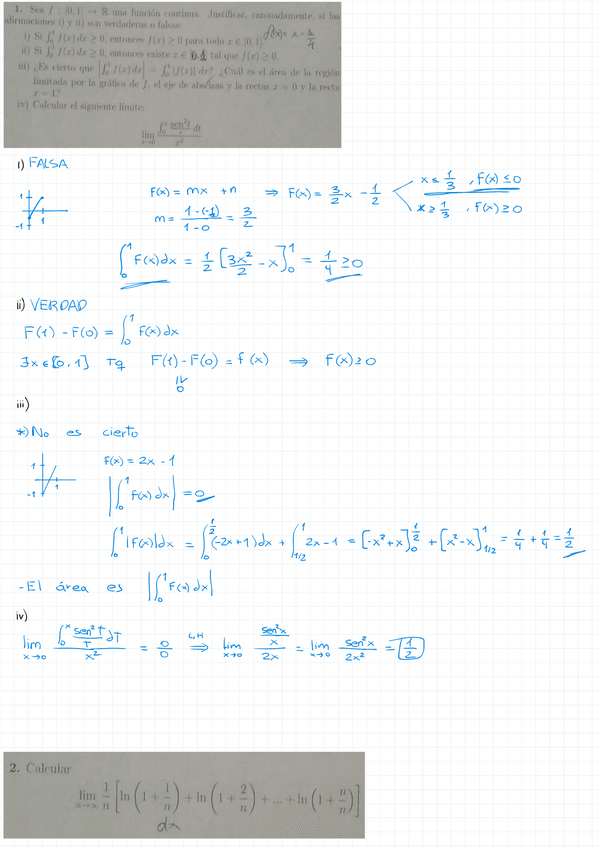 1. Sea f : [0, 1] → ℝ una función continua. Justificar, razonadamente, si las
afirmaciones i) y ii) son verdaderas o falsas:
i) Si ∫₀¹ f(x) dx ≥ 0, entonces f(x) ≥ 0 para todo x ∈ [0, 1]. f(x) = x -
ii) Si ∫₀¹ f(x) dx ≥ 0, entonces existe x ∈ [0, 1] tal que f(x) ≥ 0.
iii) ¿Es cierto que |∫₀¹ f(x) dx| = ∫₀¹ |f(x)| dx? ¿Cuál es el área de la región
limitada por la gráfica de f, el eje de abscisas y la rectas x = 0 y la recta
x = 1?
iv) Calcular el siguiente límite:
lim x→0 (∫₀ˣ sen²t/t dt)/x²
i) FALSA
F(x) = mx + n ⇒ F(x) = 3/2 x - 1/2
x ≤ 1/3, F(x) ≤ 0
x ≥ 1/3, F(x) ≥ 0
m = (1-(-1))/(1-0) = 3/2
1
1
-1
∫₀¹ F(x)dx = 1/2 [3x²/2 - x]₀¹ = 1/4 ≥ 0
ii) VERDAD
F(1) - F(0) = ∫₀¹ F(x)dx
∃x∈[0,1] Tq F(1) - F(0) = f(x) ⇒ F(x) ≥ 0
≥ 0
iii)
*) No es cierto
F(x) = 2x - 1
1
1
-1
|∫₀¹ F(x)dx| = 0
∫₀¹ |F(x)|dx = ∫₀^(1/2) (-2x+1)dx + ∫_(1/2)¹ 2x-1 = [-x²+x]₀^(1/2) + [x²-x]_(1/2)¹ = 1/4 + 1/4 = 1/2
- El área es |∫₀¹ F(x)dx|
iv)
lim x→0 (∫₀ˣ sen²T/T dT)/x² = 0/0 L'H ⇒ lim x→0 (sen²x/x)/2x = lim x→0 sen²x/2x² = 1/2
2. Calcular
lim n→∞ 1/n [ln(1 + 1/n) + ln(1 + 2/n) + ... + ln(1 + n/n)]
dx